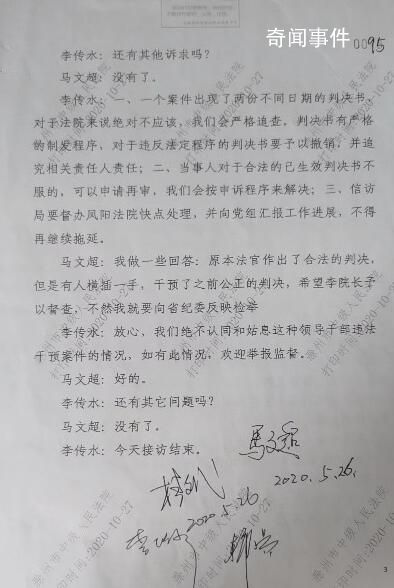 奇闻事件
0095
李传水：还有其他诉求吗？
马文超：没有了。
李传水：一、一个案件出现了两份不同日期的判决书，
对于法院来说绝对不应该，我们会严格追查，判决书有严格
的制发程序，对于违反法定程序的判决书要予以撤销，并追
究相关责任人责任；二、当事人对于合法的已生效判决书不
服的，可以申请再审，我们会按申诉程序来解决；三、信访
局要督办凤阳法院快点处理，并向党组汇报工作进展，不得
再继续拖延。
马文超：我做一些回答：原本法官作出了合法的判决，
但是有人横插一手，干预了之前公正的判决，希望李院长予
以督查，不然我就要向省纪委反映检举
李传水：放心，我们绝不认同和姑息这种领导干部违法
干预案件的情况，如有此情况，欢迎举报监督。
马文超：好的。
李传水：还有其它问题吗？
马文超：没有了。
李传水：今天接访结束。
馬文超
2020.5.26.
2020.5.26
滁州市中级人民法院
打印时间:2020-10-27
3